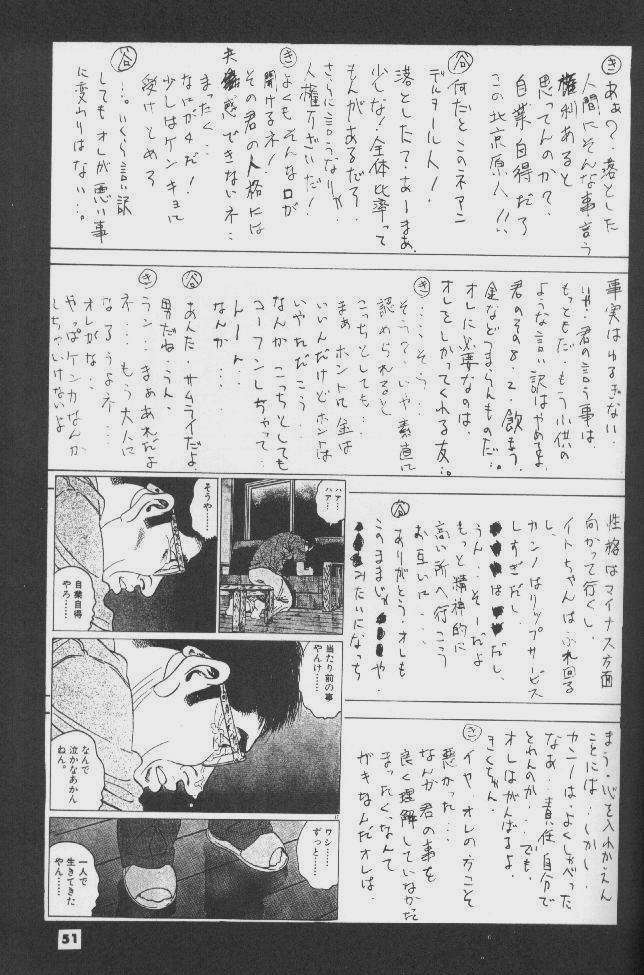 き あぁの?、落とした
人間にそんな事言う
権利あると
思ってんのか?、
自業自得だろ
この北京原人!!
谷 何だとこのネアン
デルタール人!
落としたて、あーまあ、
少しな!全体比率って
もんがあるだろ、
さらに言うなりゃ、
人権だぎいだ!
き よくもそんな口が
聞けるネ!
その君の人格には
共感できないネ…
まったく…
なにが4だ!
少しはケンキョに
受けとめろ
谷 …。いくら言い訳
してもオレが悪い事
に変わりはない…。
事実はゆるぎない。
いや、君の言う事は、
もっともだ、もう小供の
ような言い訳はやめるよ、
君のその8.2、飲もう、
金などつまらんものだ…。
オレに必要なのは、
オレをしかってくれる友…。
き …こそう…
そう?、いや素直に
認められると
こっちとしても…
まぁ、ホントに金は
いいんだけどホントは
いやだけだこう
なんかこっちとしても
コーフンしちゃって…
トーン…
なんか…
谷 あんた、サムライだよ
男だね…うん、
き ラン…まぁあれだよ
ネ…、もう大人に
なろうよネ…、
オレがな…
やっぱケンカなんか
しちゃいけないよ
性格はマイナス方面
向かって行くし、
イトちゃんはふれ回る
し、
カンノはリップサービス
しすぎだし、
は だし、
うん…そーだよ
もっと精神的に
高い所へ行こう
お互いに…
谷 ありがとう、オレも
このままじゃ や、
みたいになっち
まう、心を入れかえん
ことには…しかし、
カンノは、よくしゃべった
なぁ…責任自分で
とれんのか…でも、
オレはがんばるよ、
きくちゃん、
き イヤ、オレの方こそ
悪かった…
なんか君の事を
良く理解していなかった
まったく、なんて
ガキなんだオレは、
ハァ…
ハァ…
そうや……
自業自得
やろ……
当たり前の事
やんけ……
なんで
泣かなあかん
ねん。
ワシ……
ずっと……
一人で
生きてきた
やん……
51